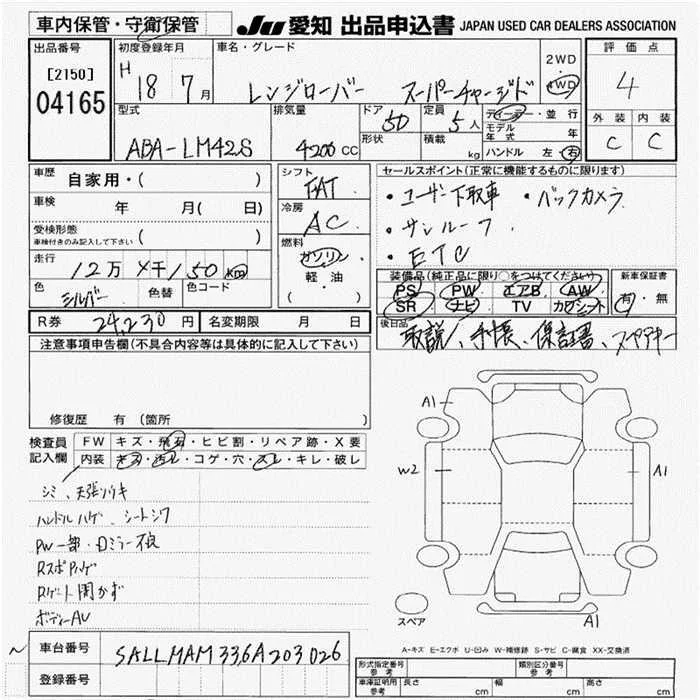 車内保管・守衛保管 JU 愛知 出品申込書 JAPAN USED CAR DEALERS ASSOCIATION
出品番号 初度登録年月 車名・グレード 2WD 評価点
[2150] H 18 7月 レンジローバー スーパーチャージド 4WD 4
04165 型式 排気量 ドア 50 定員 5人 ディーラー・並行 外装 内装
ABA-LM42S 4200cc 形状 積載 kg モデル年式 年 C C
ハンドル 左・右
車歴 自家用・( ) シフト FAT セールスポイント(正常に機能するものに限ります)
車検 年 月( 日) 冷房 AC ・ユーザー下取車 ・バックカメラ
受検形態 ・サンルーフ
車検付きのみ記入して下さい ( ) 燃料 ガソリン ・ETC
走行 12万 4千150km 軽油 装備品(純正品に限り○をつけてください) 新車保証書
色 シルバー 色替 色コード ( ・ ) PS PW エアB AW 有・無
SR ナビ TV カワシート
R券 24,230円 名変期限 月 日 後日品 取説、手帳、保証書、スペアキー
注意事項申告欄(不具合内容等は具体的に記入して下さい)
修復歴 有(箇所 )
検査員 FW キズ・飛石・ヒビ割・リペア跡・X要
記入欄 内装 キズ・汚レ・コゲ・穴・スレ・キレ・破レ
シミ、天張りウキ
ハンドルハゲ、シートシワ
PW一部・Dミラー不良
Rスポハゲ
Rゲート開かず
ボディーAU
A1
W2 A1
スペア A1
A-キズ E-エクボ U-凹み W-補修跡 S-サビ C-腐食 XX-交換済
車台番号 SALLMAM336A203026
登録番号
形式指定番号 参考 類別区分番号 参考
車庫証明用 参考 長さ cm 幅 cm 高さ cm